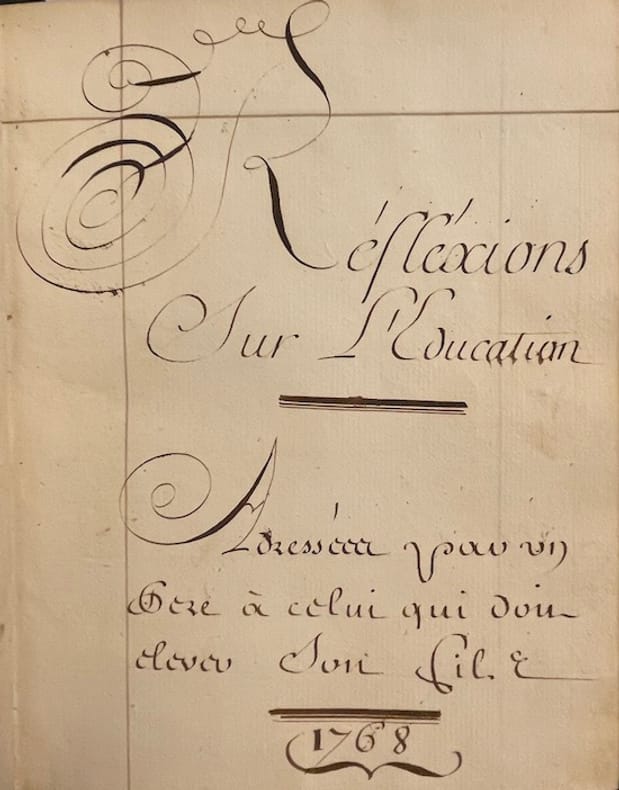 Réfléxions
Sur L'Education
Adressées par un
Pere à celui qui doit
elever Son fils
1768